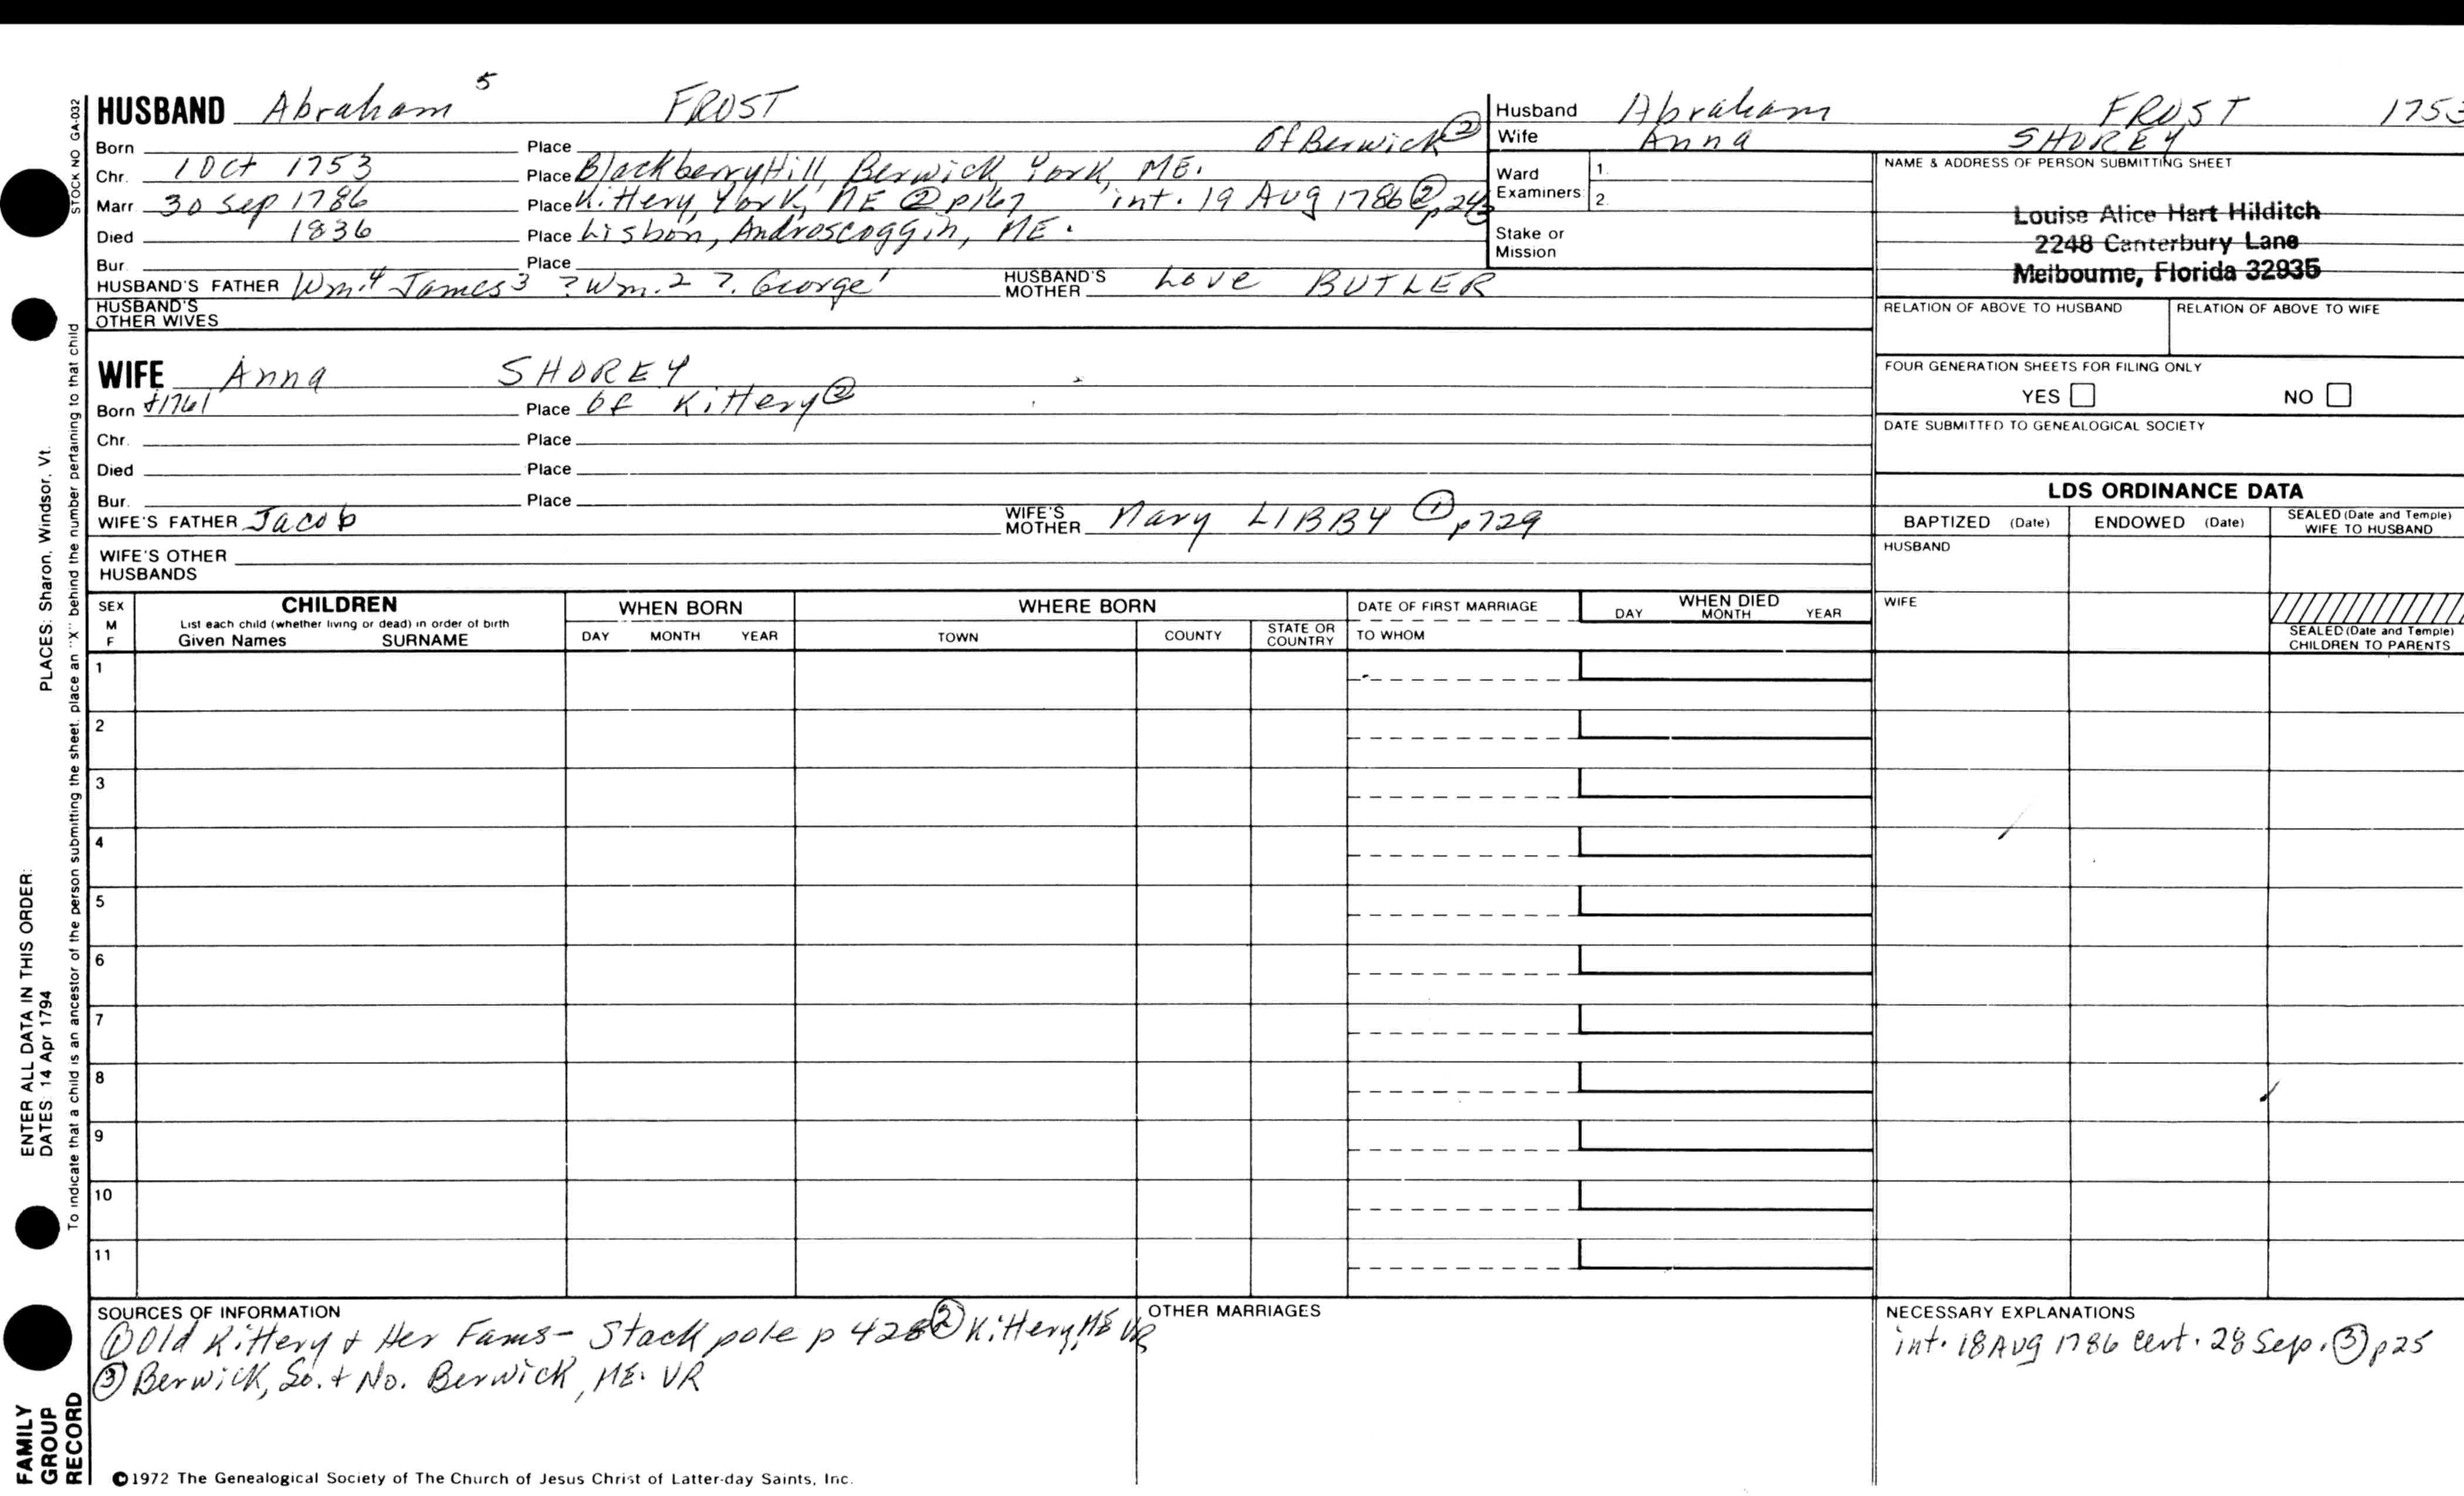 HUSBAND Abraham 5 FROST
Born Place Of Berwick ②
Chr. 1 Oct 1753 Place Blackberry Hill, Berwick York, ME.
Marr. 30 Sep 1786 Place Kittery, York, ME ② p167 int. 19 Aug 1786 ②
Died 1836 Place Lisbon, Androscoggin, ME.
Bur. Place
HUSBAND'S FATHER Wm.4 James3 ?Wm.2 ?. George1 HUSBAND'S MOTHER Love BUTLER
HUSBAND'S OTHER WIVES
WIFE Anna SHOREY
Born Place of Kittery ②
Chr. Place
Died Place
Bur. Place
WIFE'S FATHER Jacob WIFE'S MOTHER Mary LIBBY ① p729
WIFE'S OTHER HUSBANDS
Husband Abraham FROST 1753
Wife Anna SHOREY
Ward 1.
Examiners: 2.
Stake or
Mission
NAME & ADDRESS OF PERSON SUBMITTING SHEET
Louise Alice Hart Hilditch
2248 Canterbury Lane
Melbourne, Florida 32935
RELATION OF ABOVE TO HUSBAND RELATION OF ABOVE TO WIFE
FOUR GENERATION SHEETS FOR FILING ONLY
YES NO
DATE SUBMITTED TO GENEALOGICAL SOCIETY
LDS ORDINANCE DATA
BAPTIZED (Date) ENDOWED (Date) SEALED (Date and Temple) WIFE TO HUSBAND
HUSBAND
WIFE
SEALED (Date and Temple)
CHILDREN TO PARENTS
SEX M F CHILDREN WHEN BORN WHERE BORN DATE OF FIRST MARRIAGE WHEN DIED
List each child (whether living or dead) in order of birth
Given Names SURNAME DAY MONTH YEAR TOWN COUNTY STATE OR COUNTRY TO WHOM DAY MONTH YEAR
1
2
3
4
5
6
7
8
9
10
11
SOURCES OF INFORMATION
① Old Kittery & Her Fams- Stackpole p 428 ② Kittery, ME VR
③ Berwick, So. & No. Berwick, ME. VR
OTHER MARRIAGES
NECESSARY EXPLANATIONS
int. 18 Aug 1786 cert. 28 Sep. ③ p25
©1972 The Genealogical Society of The Church of Jesus Christ of Latter-day Saints, Inc.
STOCK NO GA-032
To indicate that a child is an ancestor of the person submitting the sheet, place an "X" behind the number pertaining to that child
PLACES: Sharon, Windsor, Vt.
ENTER ALL DATA IN THIS ORDER:
DATES: 14 Apr 1794
FAMILY
GROUP
RECORD